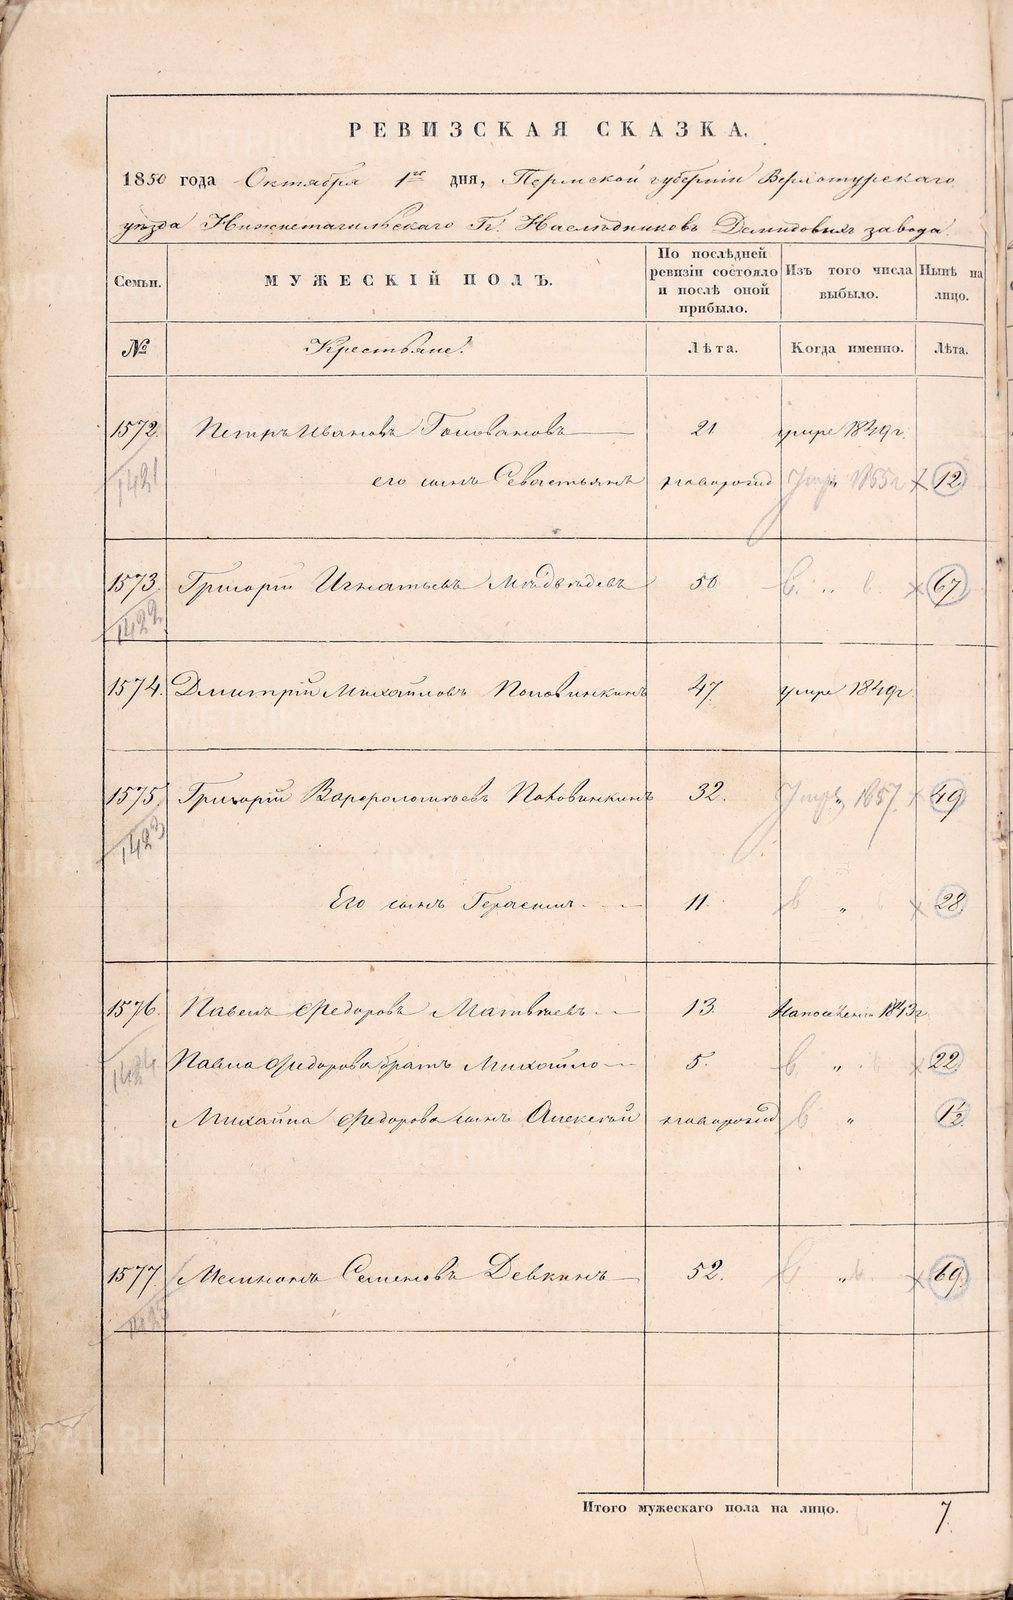 РЕВИЗСКАЯ СКАЗКА.
1850 года Октября 1го дня, Пермской губерніи Верхотурскаго
уѣзда Нижнетагильскаго Гг. Наслѣдниковъ Демидовыхъ завода.
Семьи. МУЖЕСКІЙ ПОЛЪ. По послѣдней ревизіи состояло и послѣ оной прибыло. Изъ того числа выбыло. Нынѣ на лицо.
№ Крестьяне. Лѣта. Когда именно. Лѣта.
1572. Петръ Ивановъ Головановъ 21 умре 1849г.
1421 его сынъ Севастьянъ новорожд Умръ 1855г 12
1573. Григорій Игнатьевъ Медвѣдевъ 50 в. „ в. 67
1422
1574. Дмитрій Михайловъ Половинкинъ 47 умре 1849г.
1575. Григорій Варфоломѣевъ Половинкинъ 32. Умръ 1857. 49
1423
Его сынъ Герасимъ 11. в „ в 28.
1576. Павелъ Федоровъ Матвѣевъ 13. 1843г.
1424 Павла Федорова братъ Михайло 5. в „ в 22
Михайла Федорова сынъ Алексѣй новорожд в „ 1½
1577. Семеновъ Девкинъ 52. в „ в. 69
1425
Итого мужескаго пола на лицо. 7.
METRIKI.GASO-URAL.RU